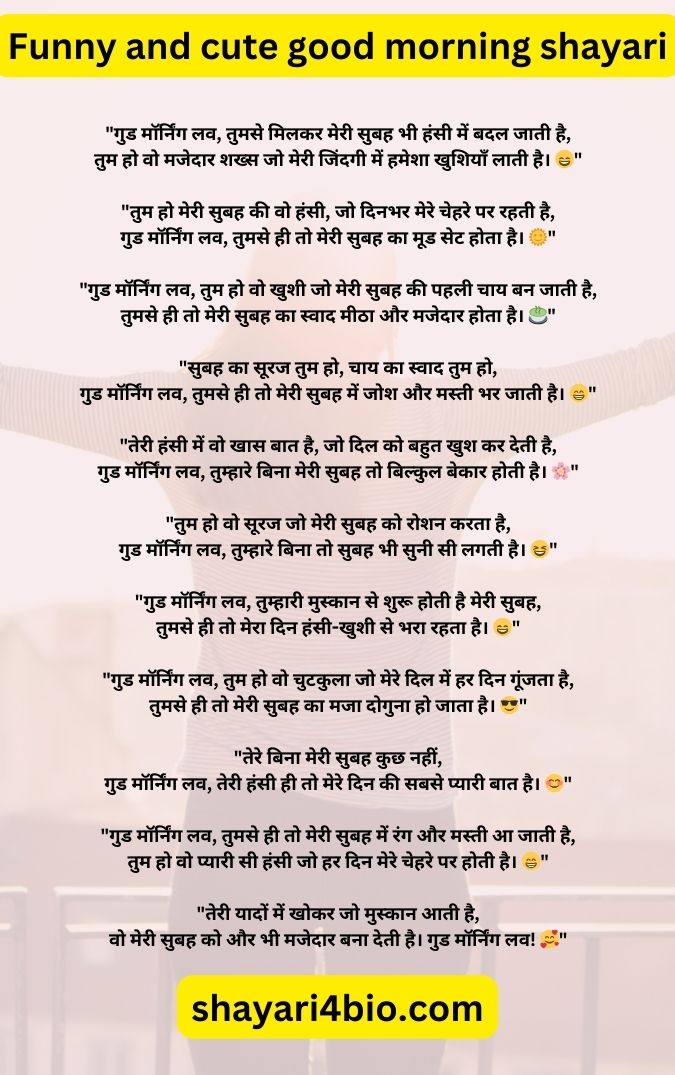 Funny and cute good morning shayari
"गुड मॉर्निंग लव, तुमसे मिलकर मेरी सुबह भी हंसी में बदल जाती है,
तुम हो वो मजेदार शख्स जो मेरी जिंदगी में हमेशा खुशियाँ लाती है। 😄"
"तुम हो मेरी सुबह की वो हंसी, जो दिनभर मेरे चेहरे पर रहती है,
गुड मॉर्निंग लव, तुमसे ही तो मेरी सुबह का मूड सेट होता है। 🌞"
"गुड मॉर्निंग लव, तुम हो वो खुशी जो मेरी सुबह की पहली चाय बन जाती है,
तुमसे ही तो मेरी सुबह का स्वाद मीठा और मजेदार होता है। 🍵"
"सुबह का सूरज तुम हो, चाय का स्वाद तुम हो,
गुड मॉर्निंग लव, तुमसे ही तो मेरी सुबह में जोश और मस्ती भर जाती है। 😄"
"तेरी हंसी में वो खास बात है, जो दिल को बहुत खुश कर देती है,
गुड मॉर्निंग लव, तुम्हारे बिना मेरी सुबह तो बिल्कुल बेकार होती है। 🌸"
"तुम हो वो सूरज जो मेरी सुबह को रोशन करता है,
गुड मॉर्निंग लव, तुम्हारे बिना तो सुबह भी सुनी सी लगती है। 😆"
"गुड मॉर्निंग लव, तुम्हारी मुस्कान से शुरू होती है मेरी सुबह,
तुमसे ही तो मेरा दिन हंसी-खुशी से भरा रहता है। 😄"
"गुड मॉर्निंग लव, तुम हो वो चुटकुला जो मेरे दिल में हर दिन गूंजता है,
तुमसे ही तो मेरी सुबह का मजा दोगुना हो जाता है। 😎"
"तेरे बिना मेरी सुबह कुछ नहीं,
गुड मॉर्निंग लव, तेरी हंसी ही तो मेरे दिन की सबसे प्यारी बात है। 😊"
"गुड मॉर्निंग लव, तुमसे ही तो मेरी सुबह में रंग और मस्ती आ जाती है,
तुम हो वो प्यारी सी हंसी जो हर दिन मेरे चेहरे पर होती है। 😄"
"तेरी यादों में खोकर जो मुस्कान आती है,
वो मेरी सुबह को और भी मजेदार बना देती है। गुड मॉर्निंग लव! 🥰"
shayari4bio.com